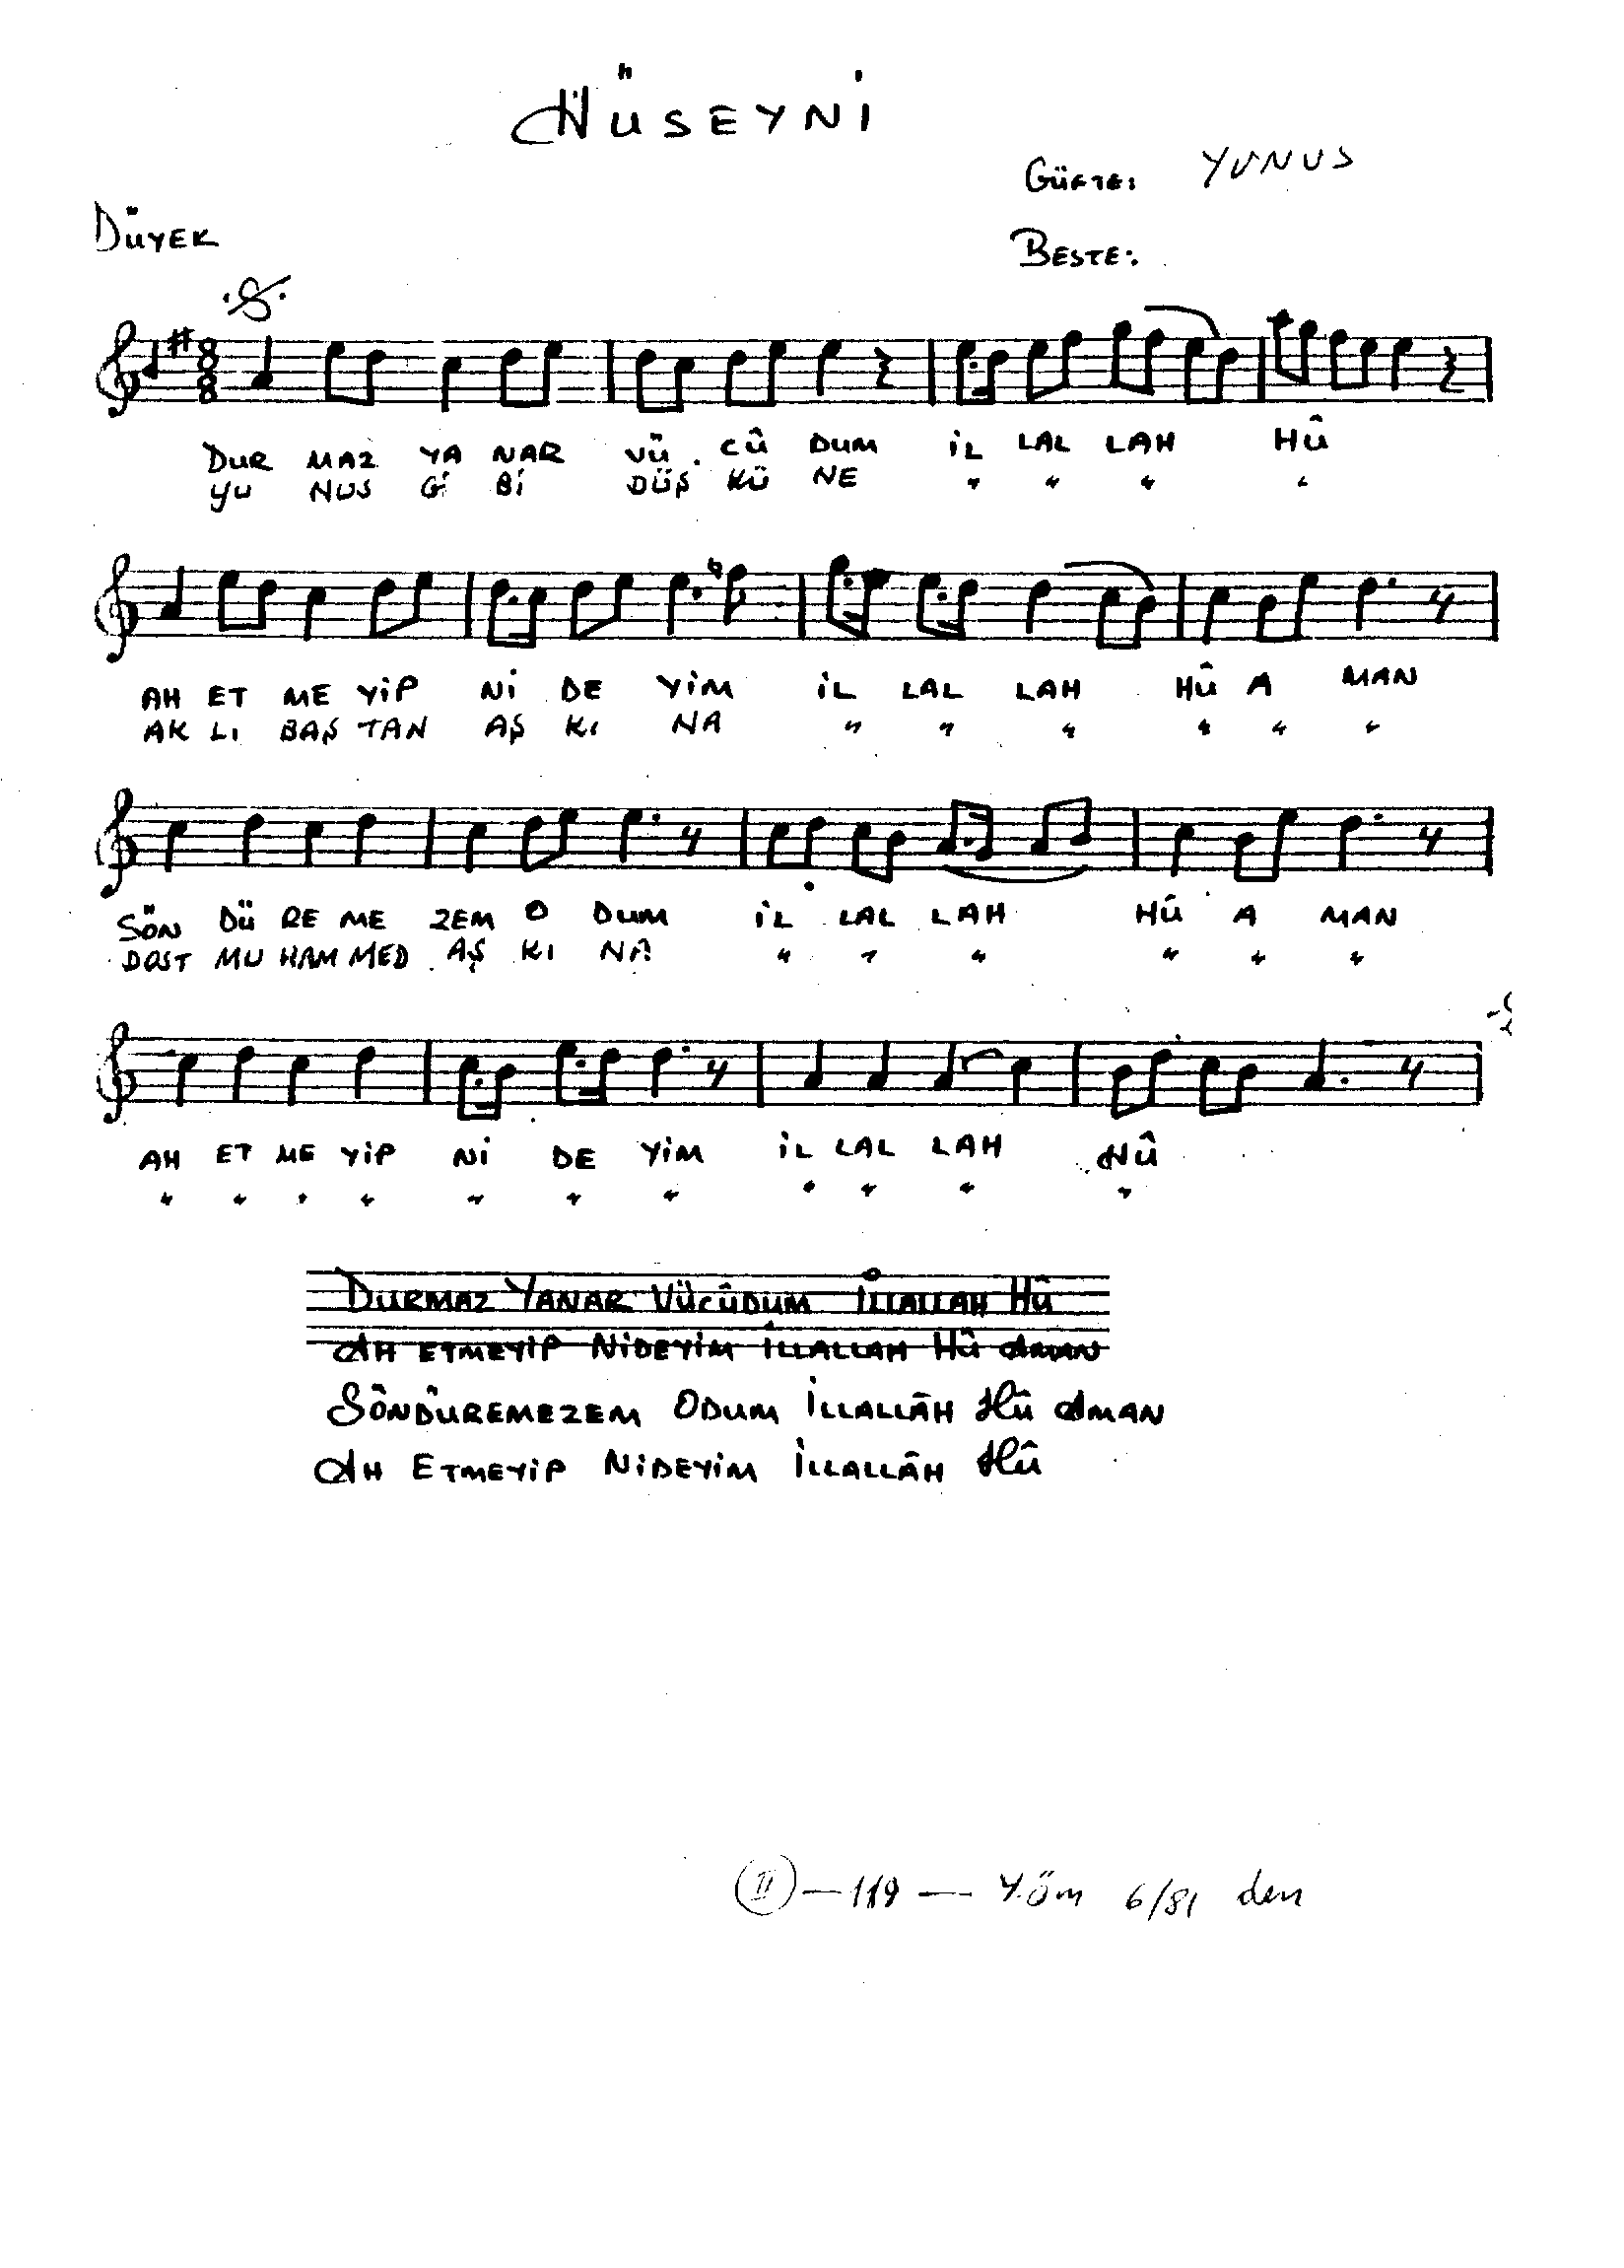 HÜSEYNİ
GÜFTE: YUNUS
DÜYEK
BESTE:
8
8
DUR MAZ YA NAR VÜ CÛ DUM İL LAL LAH HÛ
YU NUS Gİ Bİ DÜŞ KÜ NE " " " "
AH ET ME YİP Nİ DE YİM İL LAL LAH HÛ A MAN
AK LI BAŞ TAN AŞ KI NA " " " " " "
SÖN DÜ RE ME ZEM O DUM İL LAL LAH HÛ A MAN
DOST MU HAM MED AŞ KI NA " " " " " "
AH ET ME YİP Nİ DE YİM İL LAL LAH HÛ
" " " " " " " " " " "
DURMAZ YANAR VÜCÛDUM İLLALLAH HÛ
AH ETMEYİP NİDEYİM İLLALLAH HÛ AMAN
SÖNDÜREMEZEM ODUM İLLALLÂH HÛ AMAN
AH ETMEYİP NİDEYİM İLLALLÂH HÛ
II — 119 — Y.öm 6/81 den